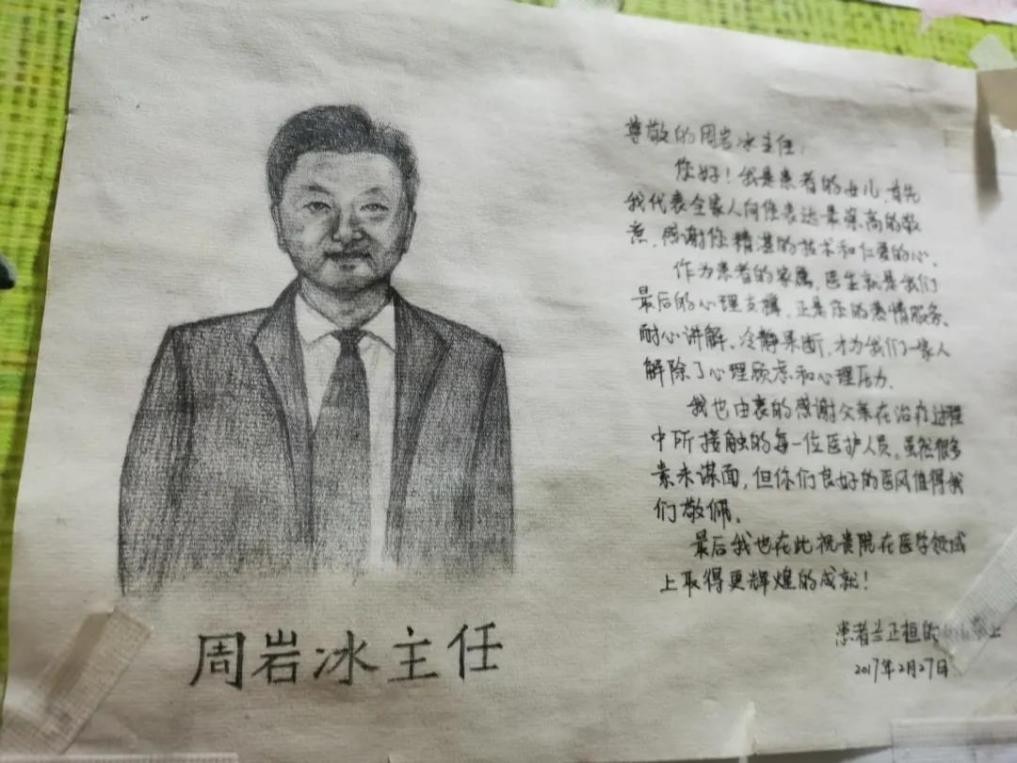 尊敬的周岩冰主任:
您好!我是患者的女儿,首先
我代表全家人向您表达最崇高的敬
意,感谢您精湛的技术和仁爱的心。
作为患者的家属,医生就是我们
最后的心理支撑,正是您的热情服务、
耐心讲解、冷静果断,才为我们一家人
解除了心理顾虑和心理压力。
我也由衷的感谢父亲在治疗过程
中所接触的每一位医护人员。虽然很多
素未谋面,但你们良好的医风值得我
们敬佩。
最后我也在此祝贵院在医学领域
上取得更辉煌的成就!
患者兰正担的
2017年2月27日
周岩冰主任